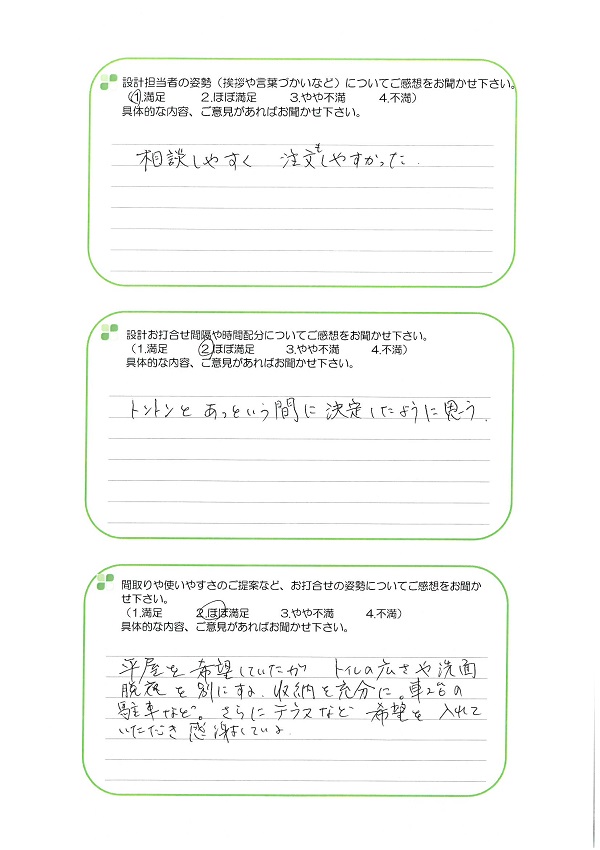 設計担当者の姿勢（挨拶や言葉づかいなど）についてご感想をお聞かせ下さい。
（1.満足　2.ほぼ満足　3.やや不満　4.不満）
具体的な内容、ご意見があればお聞かせ下さい。
相談しやすく　注文もしやすかった.
設計お打合せ間隔や時間配分についてご感想をお聞かせ下さい。
（1.満足　2.ほぼ満足　3.やや不満　4.不満）
具体的な内容、ご意見があればお聞かせ下さい。
トントンと あっという間に 決定したように思う.
間取りや使いやすさのご提案など、お打合せの姿勢についてご感想をお聞か
せ下さい。
（1.満足　2.ほぼ満足　3.やや不満　4.不満）
具体的な内容、ご意見があればお聞かせ下さい。
平屋を 希望していたが　トイレの広さや 洗面
脱衣 を 別にする. 収納を 充分に。車2台の
駐車など。さらに テラスなど 希望を 入れて
いただき 感謝している.